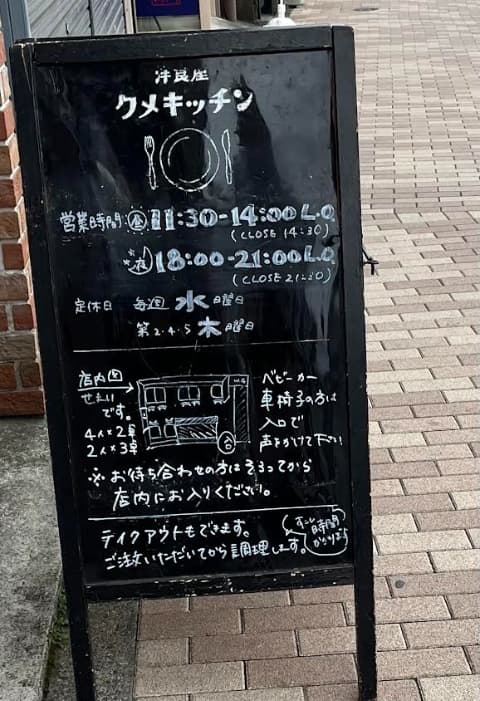 洋食屋
クメキッチン
営業時間: 昼 11:30-14:00 L.O
(CLOSE 14:30)
夜 18:00-21:00 L.O
(CLOSE 21:30)
定休日 毎週 水曜日
第2.4.5 木曜日
店内図
せまい
です。
4人×2卓
2人×3卓
ベビーカー
車椅子の方は
入口で
声をかけて下さい
※お待ち合わせの方はそろってから
店内にお入りください。
テイクアウトもできます。
ご注文いただいてから調理します。
すこし
時間
かかります